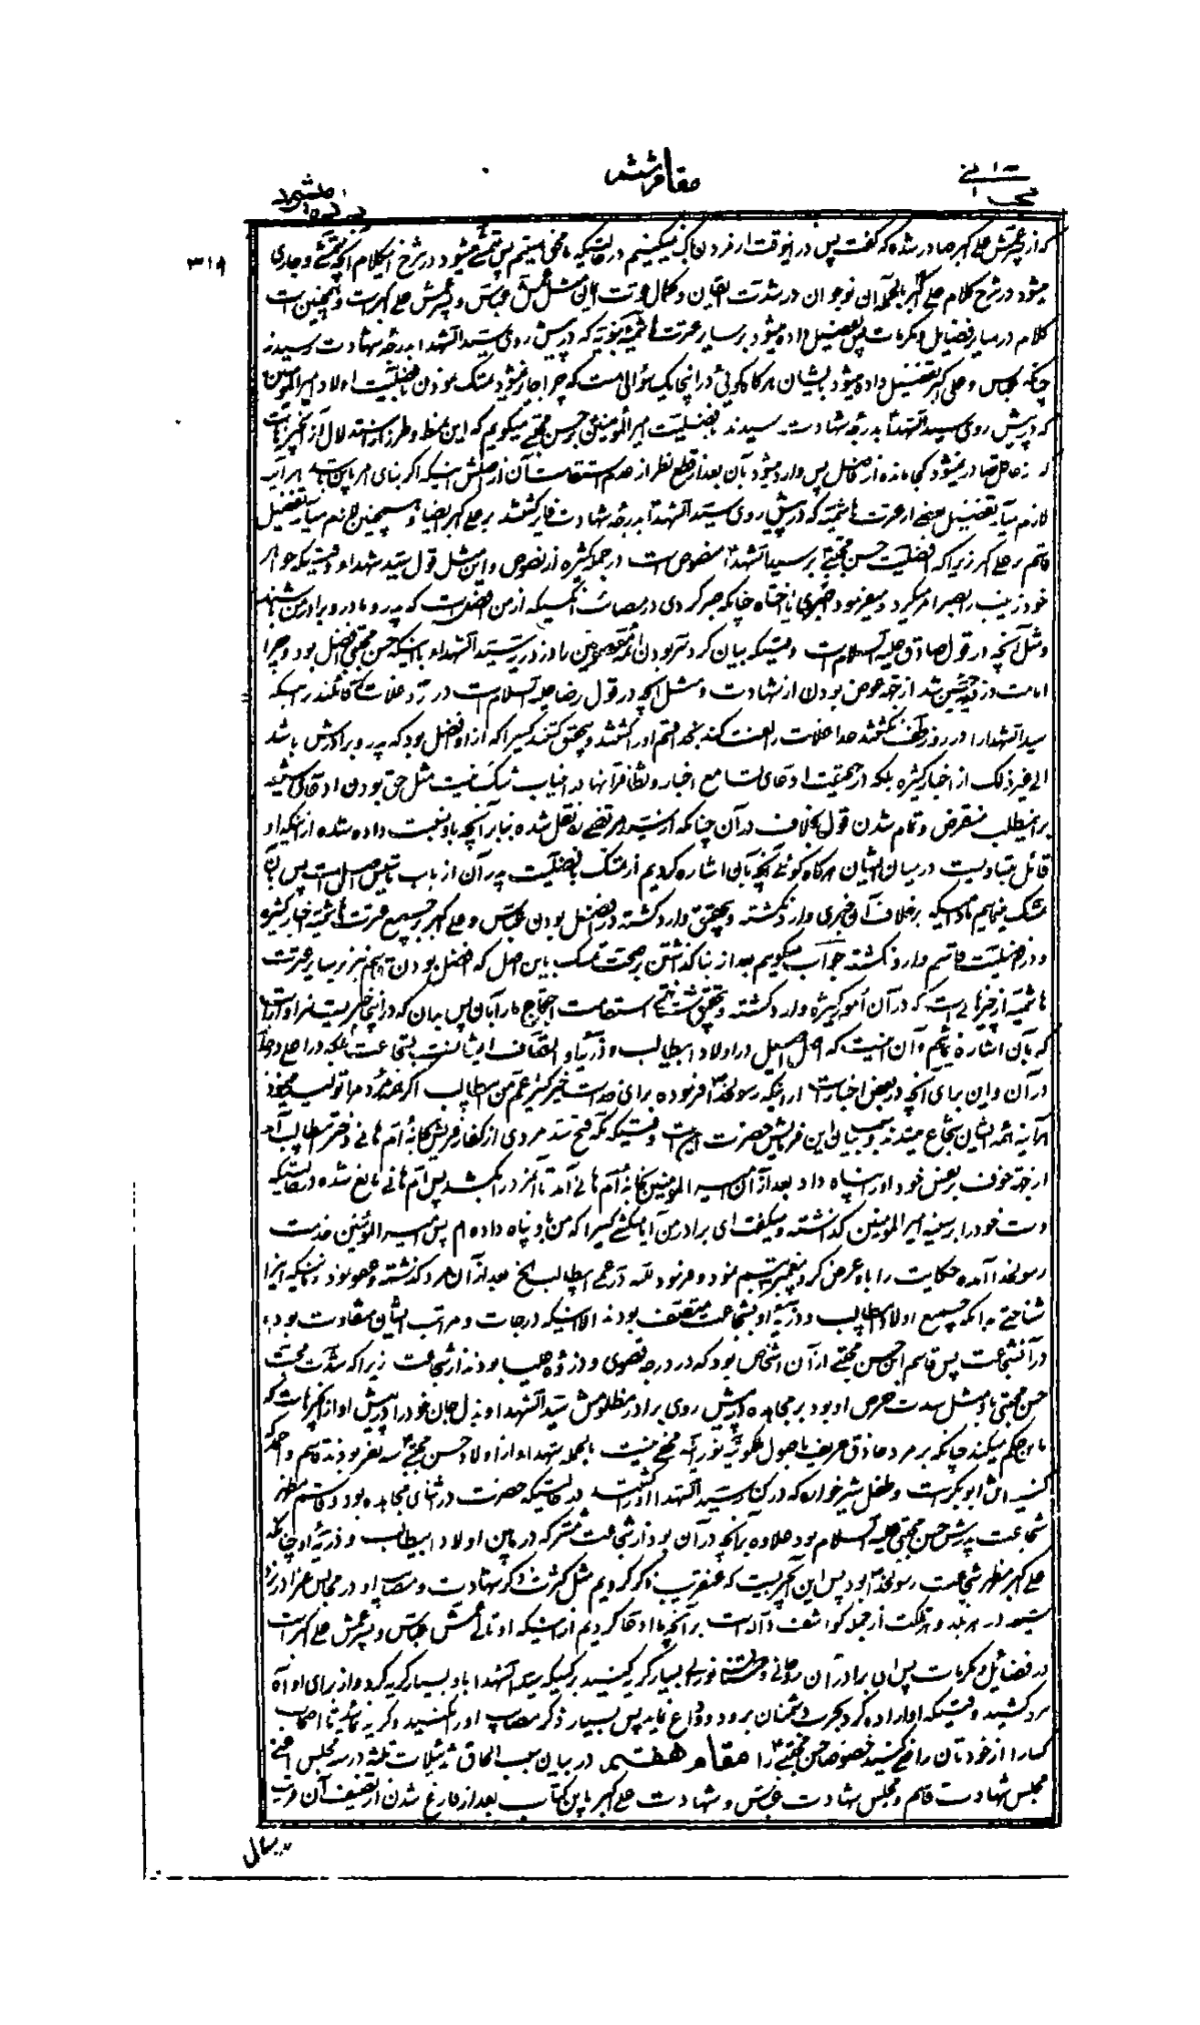 مقام ششم
۳۱۹
که از پسر عمش علی اکبر صادر شده که گفت پس در اینوقت از مردن باک نمیکنیم در حالتیکه ما محق هستیم پس میشود در شرح این کلام آنچه و جاری
میشود در شرح کلام علی اکبر بالجمله آن نوجوان در شدت یقین و کمال ایمان مثل عمش عباس و پسر عمش علی اکبر است و همچنین است
کلام در سایر فضایل و مکرمات پس تفضیل داده میشود بر سایر عترت هاشمیه که در پیش روی سید الشهدا بدرجه شهادت رسیدند
چنانکه عباس و علی اکبر تفضیل داده میشود بایشان هرگاه گوئی در اینجا یک سؤالی است که چرا جایز نمیشود تمسک نمودن بافضلیت اولاد امیرالمومنین
که در پیش روی سید الشهدا بدرجه شهادت رسیدند بافضلیت امیرالمؤمنین بر حسن مجتبی میگویم که این نمط و طرز از استدلال از چیزیست
که از عاقل صادر نمیشود کجا مانده از فاضل پس وارد میشود بآن بعد از قطع نظر از عدم استقامت آن از اصلش اینکه اگر بنای امر باین باشد هر آینه
لازم میآید تفضیل جمعی از عترت هاشمیه که در پیش روی سید الشهدا بدرجه شهادت فایز گشتند بر علی اکبر ایضا و همچنین لازم میآید تفضیل
قاسم بر علی اکبر زیرا که افضلیت حسن مجتبی بر سید الشهدا منصوص است در جمله کثیره از نصوص و این مثل قول سید شهدا وقتیکه خواهر
خود زینب را بصبر امر میکرد و میفرمود صبر کن یا اختاه چنانکه صبر کردی در مصائب کسیکه از من افضل است که پدر و مادر و برادر من باشند
و مثل آنچه در قول صادق علیه السلام است وقتیکه بیان کرد سر بودن ائمه معصومین را در ذریه سید الشهداء با اینکه حسن مجتبی افضل بود و چرا
امامت در ذریه حسین شد از جهة عوض بودن از شهادت و مثل آنچه در قول رضا علیه السلام است در رد غلات که قائلند بر اینکه
سید الشهدا را در روز طف نکشتند خدا غلات را لعنت کند بخدا قسم او را کشتند و بتحقیق کشتند کسیرا که از او افضل بود که پدر و برادرش باشد
الی غیر ذلک از اخبار کثیره بلکه در حقیقت ادعای تسامع اخبار و تظافر آنها در اینباب شک نیست مثل حق بودن ادعای
بر این مطلب منقرض و تمام شدن قول بخلاف در آن چنانکه از سید مرتضی نقل شده بنا بر آنچه باو نسبت داده شده از اینکه او
قائل بتساویست در میان ایشان هرگاه گوئی آنچه بآن اشاره کردیم از تمسک بافضلیت پدر آن از باب تأسیس اصل است پس بآن
تمسک مینمائیم مادامیکه بر خلاف آن خبری وارد نگشته و بتحقیق وارد گشته در افضل بودن عباس و علی اکبر بر جمیع عترت هاشمیه اخبار کثیره
و در افضلیت قاسم وارد نگشته جواب میگویم بعد از بنا گذاشتن بر صحت تمسک باین اصل که افضل بودن قاسم نیز بر سایر عترت
هاشمیه از چیزهائیست که در آن امور کثیره وارد گشته و بتحقیق استقامت احتجاج ما را بآن پس بدان که در اینجا چیزیست سزاوار است
که بآن اشاره نمائیم و آن اینست که اصل اصیل در اولاد ابیطالب و ذریه او اتصاف ایشانست بشجاعت بلکه در اعلی درجه
در آن و این برای آنچه در بعض اخبار است از اینکه رسولخدا فرموده برای خداست خیر کثیر عم من ابیطالب اگر همه مردم را تولید مینمود
هر آینه همه ایشان شجاع میشدند و سبب بیان این فرمایش حضرت اینست وقتیکه مکه فتح شد مردی از کفار قریش بخانه ام هانی دختر ابیطالب آمد
از جهة خوف بر نفس خود او را پناه داد بعد از آن امیر المومنین بخانه ام هانی آمد تا آنمرد را بکشد پس ام هانی مانع شده در حالتیکه
دست خود را بر سینه امیر المومنین گذاشته و میگفت ای برادر من آیا میکشی کسیرا که من باو پناه داده ام پس امیر المؤمنین خدمت
رسولخدا آمده حکایت را باو عرض کرد پیغمبر تبسم نمود و فرمود لله در عمی ابیطالب الخ بعد از آن از آنمرد گذشته و عفو نمود وقتیکه اینرا
شناختی بدانکه جمیع اولاد ابیطالب و ذریه او بشجاعت متصف بودند الا اینکه درجات و مراتب ایشان متفاوت بوده
در آنشجاعت پس قاسم ابن حسن مجتبی از آن اشخاص بود که در درجه قصوی و ذروه علیا بودند از شجاعت زیرا که شدت محبت
حسن مجتبی باو مثل شدت حرص او بود بر مجاهده در پیش روی برادر مظلومش سید الشهدا و بذل جان خود را در پیش او از چیزهائیست که
ما را حکم میکند چنانکه بر مرد حاذق عریف باصول ملکوتیه نوریه مخفی نیست بالجمله شهداء از اولاد حسن مجتبی سه نفر بودند قاسم و احمد که
کنیه اش ابوبکر است و طفل شیرخواره که در کنار سید الشهدا او را کشتند در حالتیکه حضرت در اثنای مجاهده بود و قاسم مظهر
شجاعت پدرش حسن مجتبی علیه السلام بود علاوه بر آنچه در آن بود از شجاعت مشترکه در مابین اولاد ابیطالب و ذریه او چنانکه
علی اکبر مظهر شجاعت رسولخدا بود پس این چیزیست که عنقریب ذکر کردیم مثل کثرت ذکر شهادت و مصایب او در مجالس عزا در نزد
شیعه در هر بلد و مملکت از جمله گواهست و داله است بر آنچه ما ادعا کردیم از اینکه او تالی عمش عباس و پسر عمش علی اکبر است
در فضائل و مکرمات پس ای برادران روحانی و طینتا نورانی بسیار گریه کنید بر کسیکه سید الشهدا باو بسیار گریه کرد و از برای او آه
سرد کشید وقتیکه او اراده کرد بحرب دشمنان برود و وداع نماید پس بسیار ذکر مصایب او را بکنید و گریه نمائید تا اصحاب
کسا را از خودتان راضی کنید خصوصا حسن مجتبی را مقام هفتم در بیان سبب الحاق تمثیلات ثلثه در سه مجلس اعنی
مجلس شهادت قاسم و مجلس شهادت عباس و شهادت علی اکبر باین کتاب بعد از فارغ شدن از تصنیف آن قریب
بدو سال